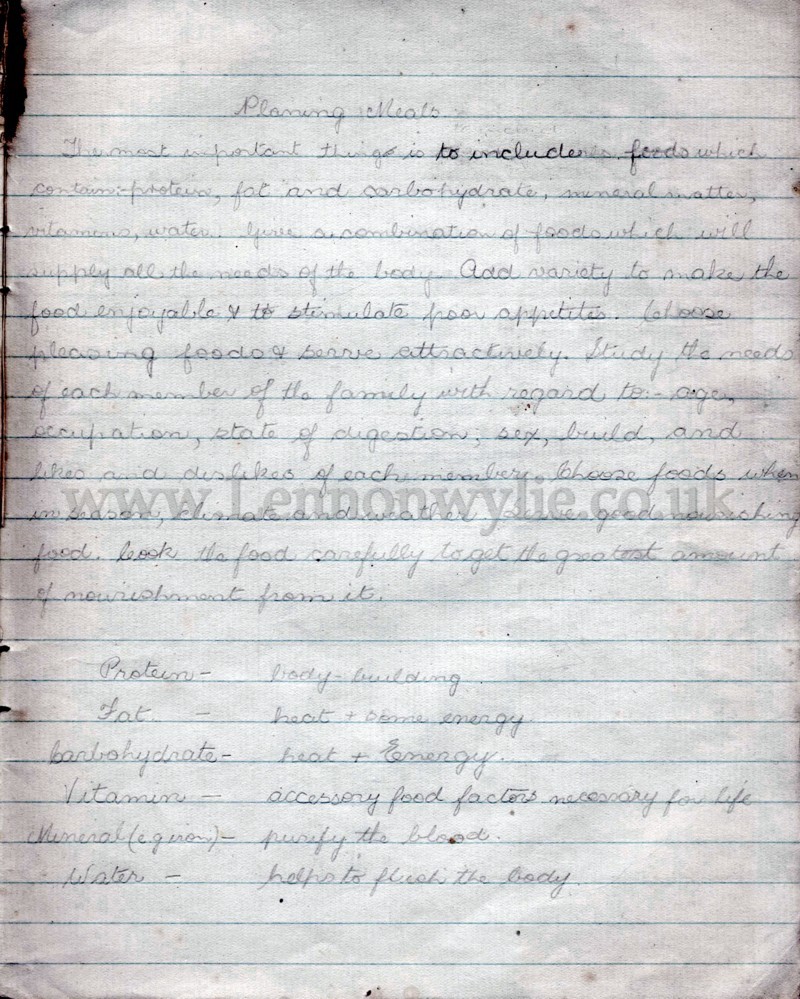 Planing Meals
The most important thing is to include foods which
contain:- protein, fat and carbohydrate, mineral matter,
vitamins, water. Give a combination of foods which will
supply all the needs of the body. Add variety to make the
food enjoyable & to stimulate poor appetites. Choose
pleasing foods & serve attractively. Study the needs
of each member of the family with regard to:- age,
occupation, state of digestion, sex, build, and
likes and dislikes of each member. Choose foods when
www.Lennonwylie.co.uk
in season, climate and weather. Serve good nourishing
food. Cook the food carefully to get the greatest amount
of nourishment from it.
Protein - body-building
Fat - heat + some energy
Carbohydrate - heat + Energy.
Vitamin - accessory food factors necessary for life
Mineral (e g iron) - purify the blood.
Water - helps to flush the body